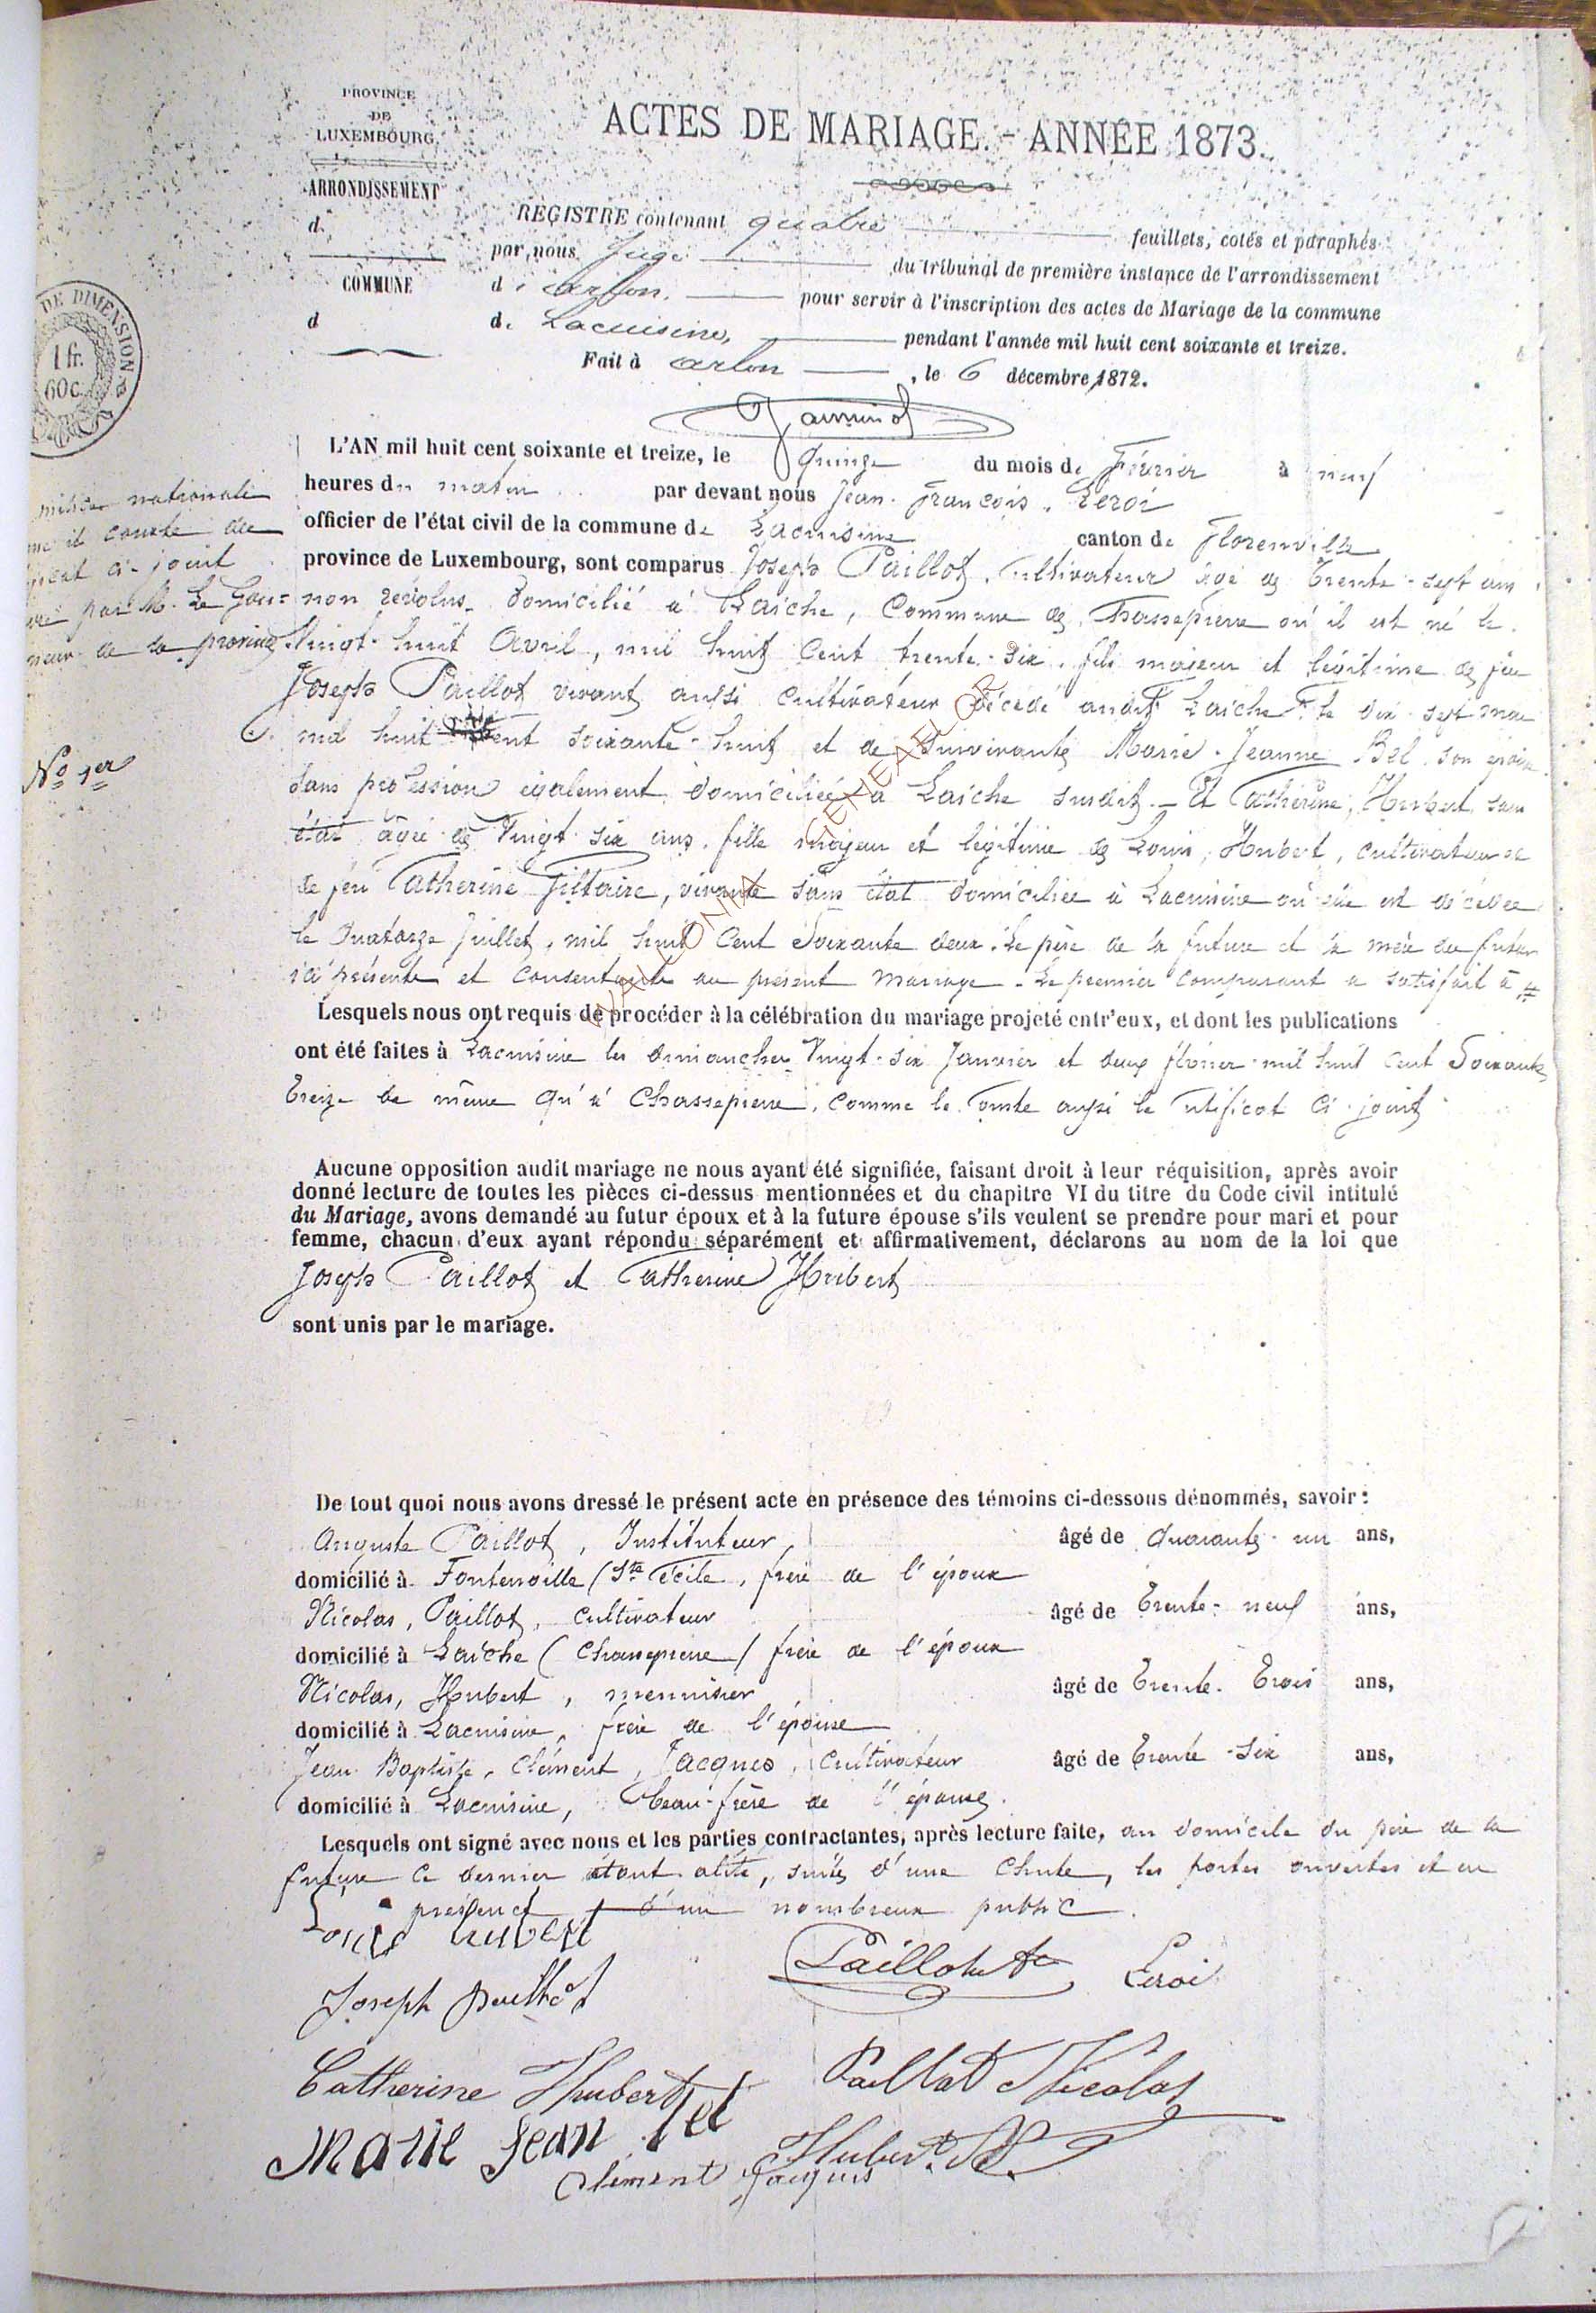 PROVINCE
DE
LUXEMBOURG
ARRONDISSEMENT
d
COMMUNE
d
ACTES DE MARIAGE. - ANNÉE 1873.
REGISTRE contenant quatre feuillets, cotés et paraphés
par nous Juge du tribunal de première instance de l'arrondissement
d'Arlon. pour servir à l'inscription des actes de Mariage de la commune
de Lacuisine, pendant l'année mil huit cent soixante et treize.
Fait à Arlon, le 6 décembre 1872.
DE DIMENSION
1 fr.
60c.
L'AN mil huit cent soixante et treize, le Quinze du mois de Février à neuf
heures du matin par devant nous Jean-François Leroi
officier de l'état civil de la commune de Lacuisine canton de Florenville
province de Luxembourg, sont comparus Joseph Paillot, cultivateur âgé de trente-sept ans
non révolus domicilié à Laiche, Commune de Chassepierre où il est né le
Vingt-huit Avril, mil huit Cent trente-six, fils majeur et légitime de feu
Joseph Paillot vivant aussi Cultivateur décédé audit Laiche le dix-sept mai
mil huit Cent soixante-huit et de survivante Marie-Jeanne Bel son épouse
sans profession également domiciliée à Laiche susdit. Et Catherine, Hubert sans
état âgée de Vingt-six ans, fille majeur et légitime de Louis, Hubert, cultivateur et
de feu Catherine Giltaire, vivante sans état domiciliée à Lacuisine où elle est décédée
le Quatorze Juillet, mil huit Cent Soixante deux. Le père de la future et la mère du futur
ici présents et Consentants au présent mariage. Le premier Comparant a satisfait à
milice nationale
il conste du
ci-joint
par M. Le Gou=
neur de la province
No 1er
Lesquels nous ont requis de procéder à la célébration du mariage projeté entr'eux, et dont les publications
ont été faites à Lacuisine les dimanches Vingt-six Janvier et deux février mil huit Cent Soixante
treize de même qu'à Chassepierre, comme le Conste aussi le certificat Ci-joint
Aucune opposition audit mariage ne nous ayant été signifiée, faisant droit à leur réquisition, après avoir
donné lecture de toutes les pièces ci-dessus mentionnées et du chapitre VI du titre du Code civil intitulé
du Mariage, avons demandé au futur époux et à la future épouse s'ils veulent se prendre pour mari et pour
femme, chacun d'eux ayant répondu séparément et affirmativement, déclarons au nom de la loi que
Joseph Paillot et Catherine Hubert
sont unis par le mariage.
De tout quoi nous avons dressé le présent acte en présence des témoins ci-dessous dénommés, savoir :
Auguste Paillot, Instituteur âgé de Quarante-un ans,
domicilié à Fontenoille (Ste Cécile, frère de l'époux
Nicolas, Paillot, cultivateur âgé de trente-neuf ans,
domicilié à Laiche (Chassepierre) frère de l'époux
Nicolas, Hubert, menuisier âgé de trente-trois ans,
domicilié à Lacuisine, frère de l'épouse
Jean-Baptiste, Clément, Jacques, Cultivateur âgé de trente-six ans,
domicilié à Lacuisine, beau-frère de l'épouse.
Lesquels ont signé avec nous et les parties contractantes, après lecture faite, au domicile du père de la
future ce dernier étant alité, suite d'une Chute, les portes ouvertes et en
présence d'un nombreux public.
Louis Hubert
Paillot Leroi
Joseph Paillot
Catherine Hubert Paillot Nicolas
Marie Jean Bel Hubert N.
Clément Jacques
WALLONIA GENEALOR